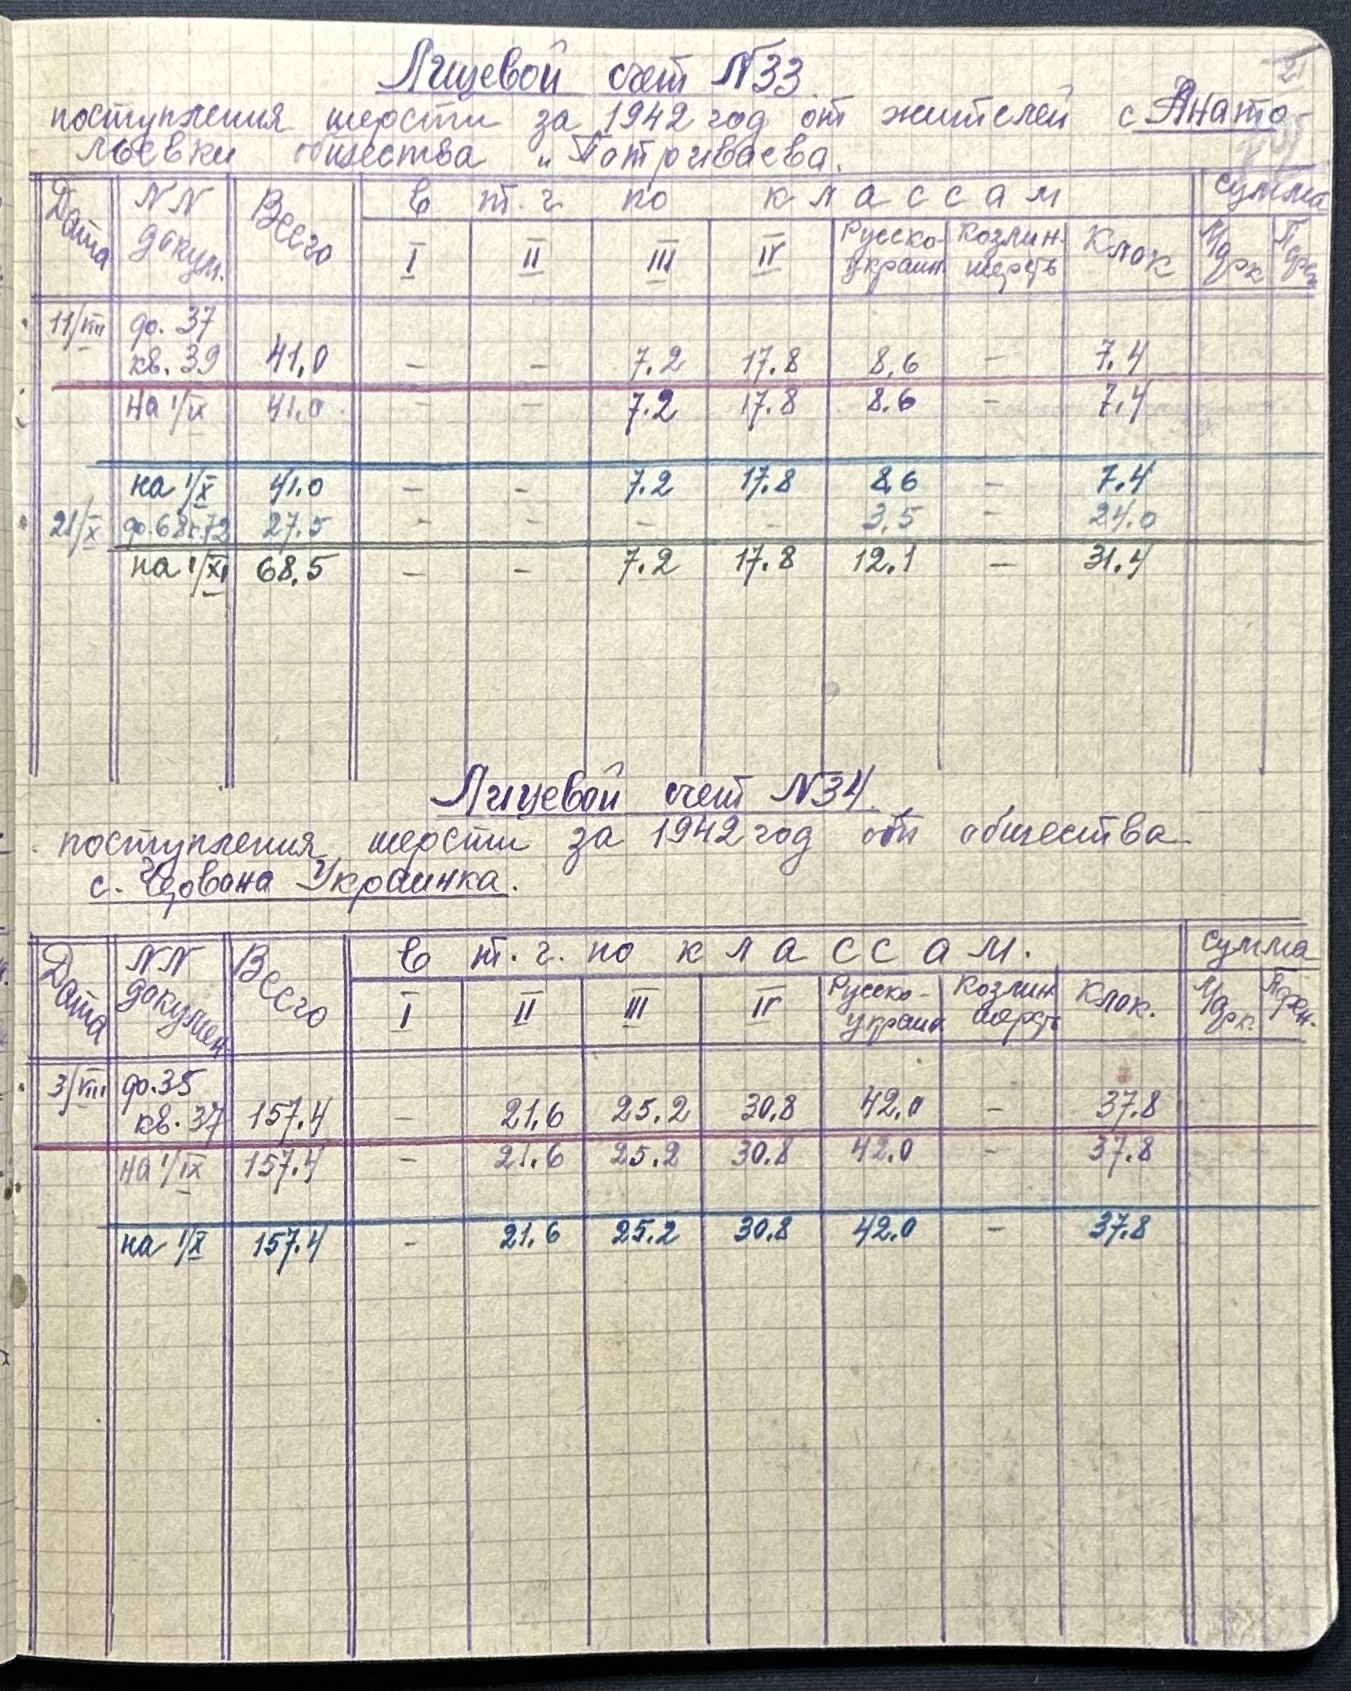 Лицевой счет N33.
поступления шерсти за 1942 год от жителей с Анато
льевки общества "
Дата NN докум. Всего в т.ч. по классам сумма
I II III IV Русско-украин Козлин. шерсть Клок Марк
11/VIII до. 37
кв. 39 41,0 – – 7.2 17.8 8,6 – 7.4
на 1/IX 41.0 – – 7.2 17.8 8.6 – 7.4
на 1/X 41.0 – – 7.2 17.8 8,6 – 7.4
21/X до.68к.72 27.5 – – – – 3,5 – 24.0
на 1/XI 68,5 – – 7.2 17.8 12.1 – 31.4
Лицевой счет N34.
поступления шерсти за 1942 год от общества
с. Червона Украинка.
Дата NN докумен Всего в т.ч. по классам. сумма
I II III IV Русско-украин Козлин шерсть Клок. Марк
3/VIII до.35
кв. 37 157.4 – 21,6 25.2 30,8 42,0 – 37.8
на 1/IX 157.4 – 21.6 25.2 30.8 42.0 – 37.8
на 1/X 157.4 – 21.6 25.2 30.8 42.0 – 37.8